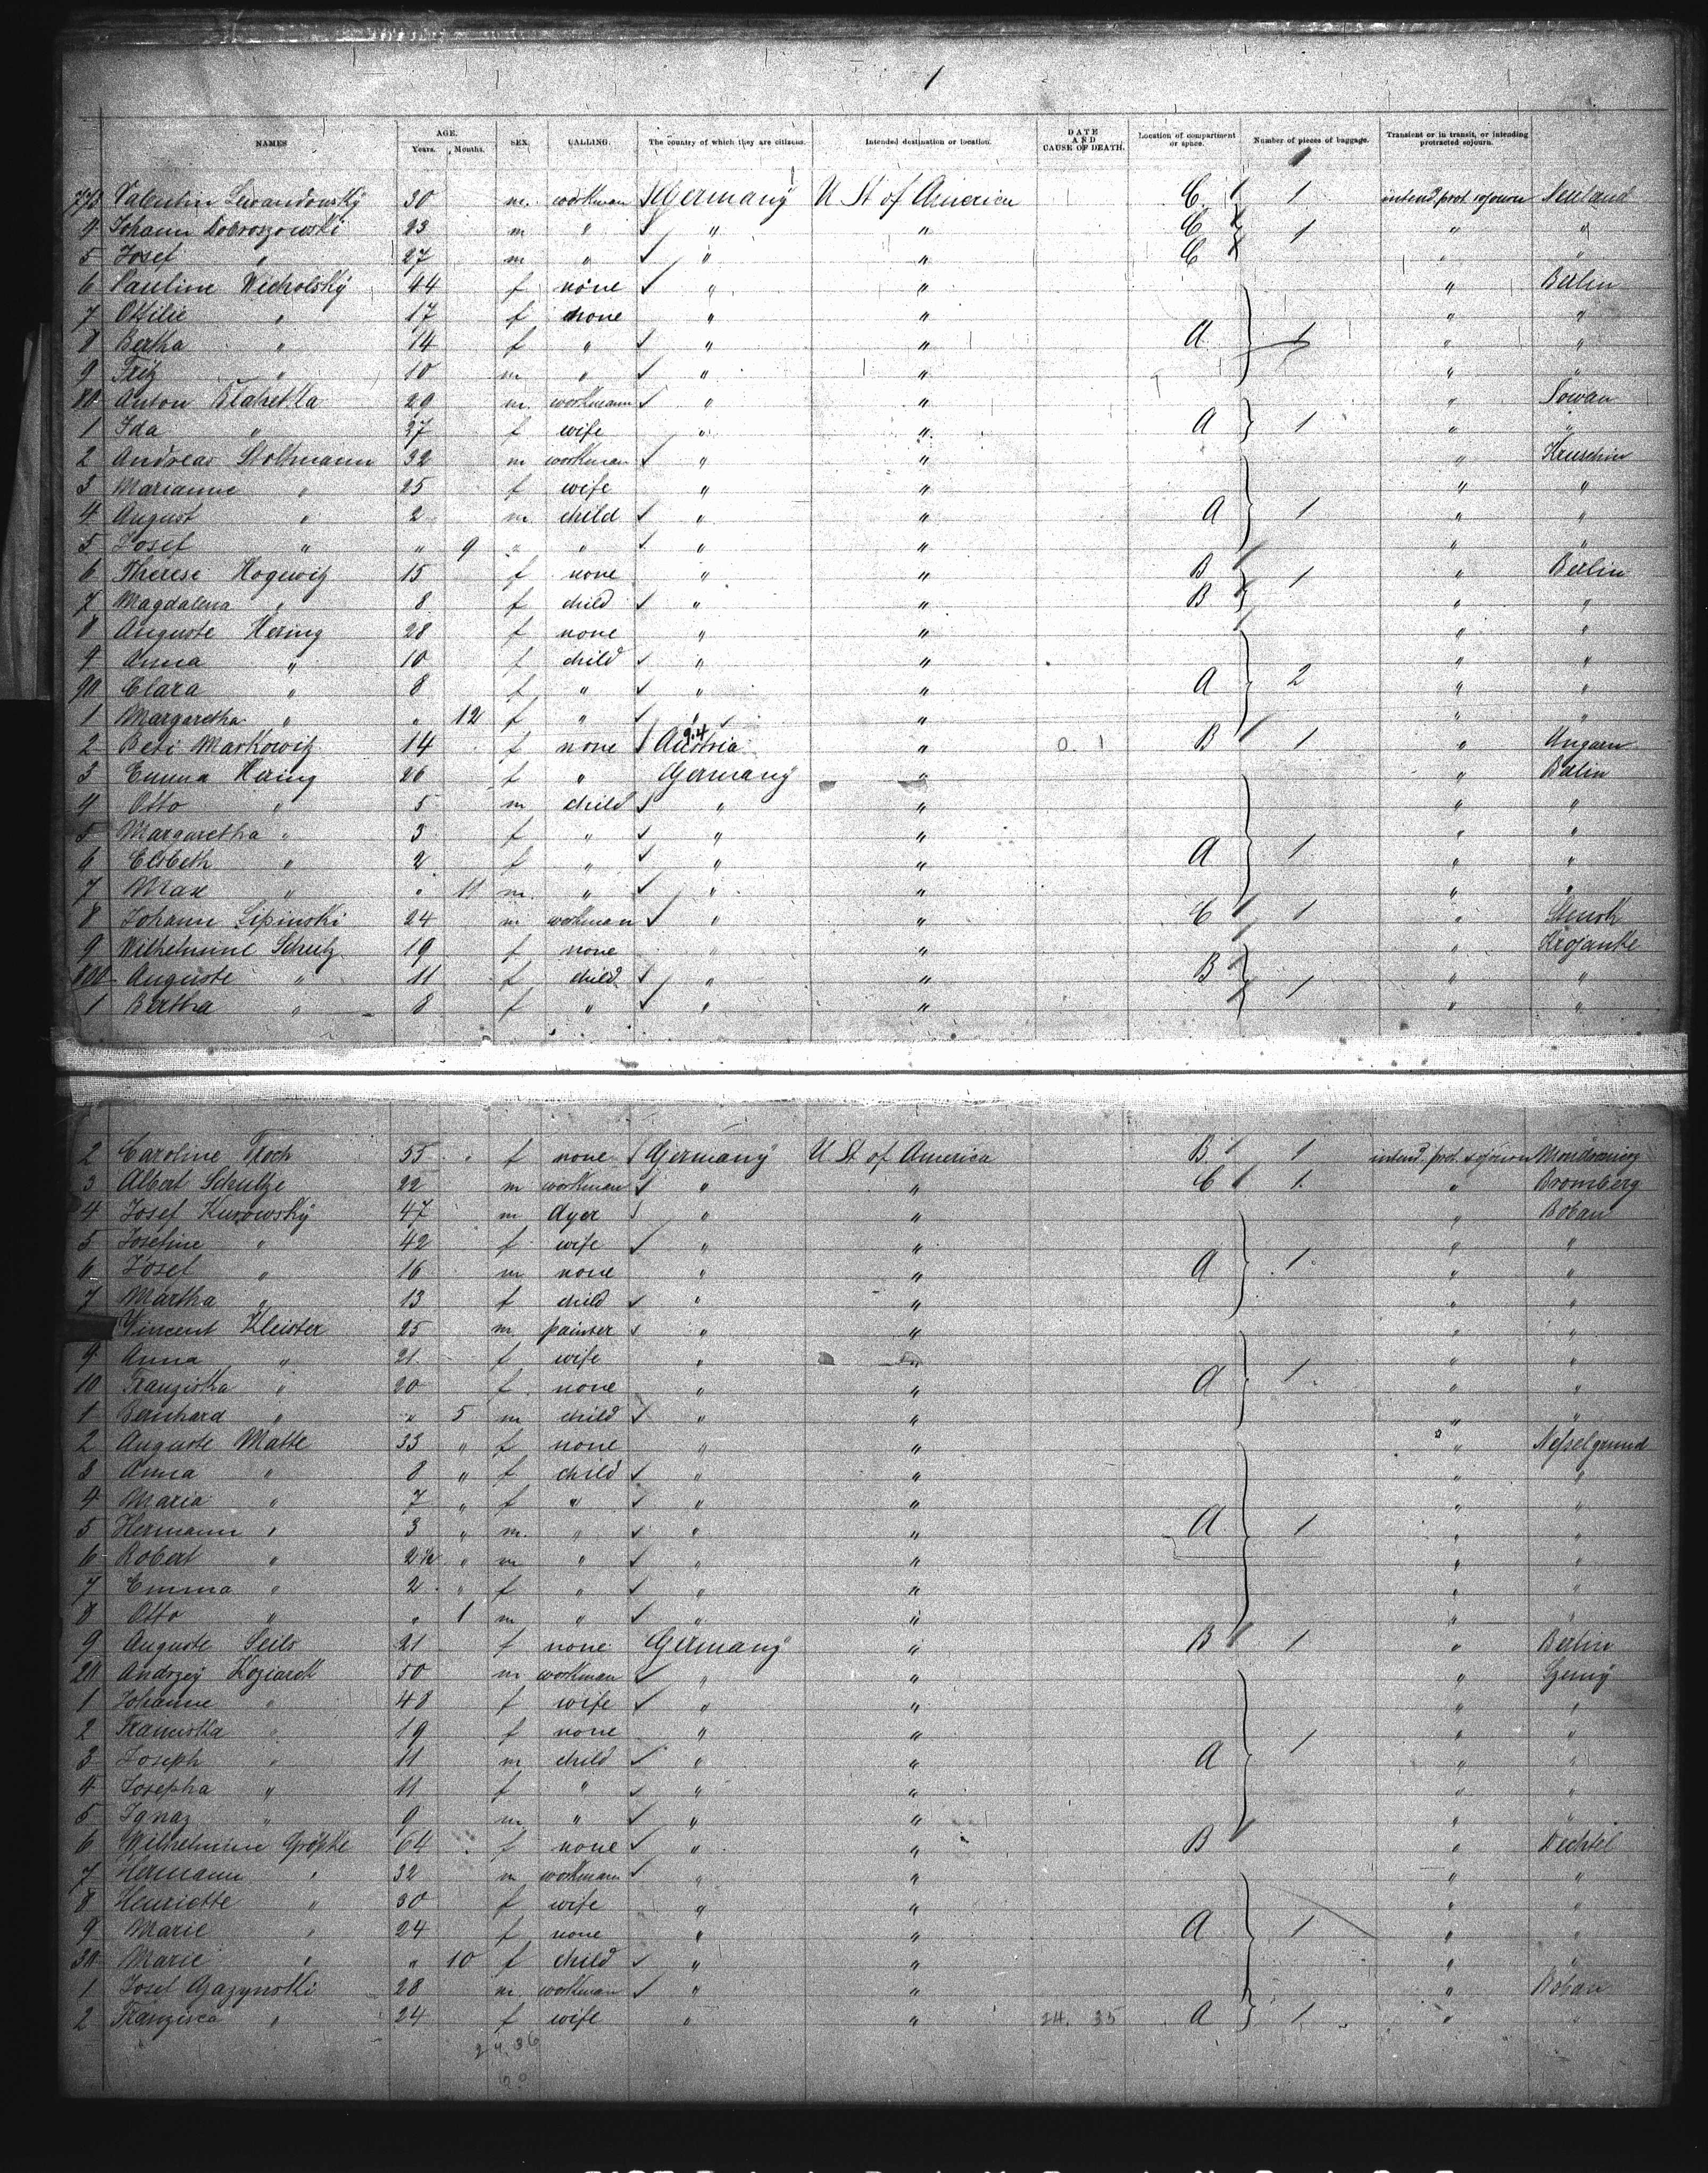 1
NAMES AGE. Years. Months. SEX. CALLING. The country of which they are citizens. Intended destination or location. DATE AND CAUSE OF DEATH. Location of compartment or space. Number of pieces of baggage. Transient or in transit, or intending protracted sojourn.
773 Valentin Lewandowsky 30 m. workman Germany U St of America C 1 intend. prot. sojourn Neuland
4 Johann Dobroszowski 23 m " " " C 1 " "
5 Josef " 27 m " " " C " "
6 Pauline Nicholsky 44 f none " " " Berlin
7 Ottilie " 17 f none " " " "
8 Bertha " 14 f " " " A 1 " "
9 Fritz " 10 m " " " " "
80 Anton Blahetka 29 m. workmann " " "
1 Ida " 27 f wife " " A 1 " "
2 Andreas Stoltmann 32 m workman " " " Kruschin
3 Marianne " 25 f wife " " " "
4 August " 2 m. child " " A 1 " "
5 Josef " " 9 " " " " " "
6 Therese Rogewitz 15 f none " " B 1 " Berlin
7 Magdalena " 8 f child " " B " "
8 Auguste Hering 28 f none " " " "
9 Anna " 10 f child " " " "
90 Clara " 8 f " " " A 2 " "
1 Margaretha " " 12 f " " " " "
2 Beti Markowitz 14 f none Austria " B 1 " Ungarn
3 Emma Hering 26 f " Germany " " Berlin
4 Otto " 5 m child " " " "
5 Margaretha " 3 f " " " " "
6 Elsbeth " 2 f " " " A 1 " "
7 Max " " 11 m " " " " "
8 Johann Lipinski 24 m workman " " C 1 "
9 Wilhelmine Schulz 19 f none " " " Krojanke
800 Auguste " 11 f child " " B 1 " "
1 Bertha " 8 f " " " " "
2 Caroline Troch 55 f none Germany U St of America B 1 intend. prot. sojourn
3 Albert Schultze 22 m workman " " C 1 " Bromberg
4 Josef Kurowsky 47 m dyer " " " Boban
5 Josefine " 42 f wife " " " "
6 Josef " 16 m none " " A 1 " "
7 Martha " 13 f child " " " "
Vincent Kleister 25 m painter " " " "
9 Anna " 21 f wife " " " "
10 Franziska " 20 f none " " A 1 " "
1 Bernhard " " 5 m child " " " "
2 Auguste Matte 33 " f none " " " Nesselgrund
3 Anna " 8 " f child " " " "
4 Maria " 7 " f " " " " "
5 Hermann " 3 " m " " " A 1 " "
6 Robert " 2½ " m " " " " "
7 Emma " 2 " f " " " " "
8 Otto " " 1 m " " " " "
9 Auguste Seils 21 f none Germany " B 1 " Berlin
20 Andrzey Koziarek 50 m workman " " "
1 Johanne " 48 f wife " " " "
2 Franciska " 19 f none " " 1 " "
3 Joseph " 11 m child " " A " "
4 Josepha " 11 f " " " " "
5 Ignaz " 9 m " " " " "
6 Wilhelmine Gröpke 64 f none " " B " Dechtel
7 Hermann " 32 m workmann " " " "
8 Henriette " 30 f wife " " " "
9 Marie " 24 f none " " A 1 " "
30 Marie " " 10 f child " " " "
1 Josef Gazynski 28 m. workman " " " Boban
2 Franzisca " 24 f wife " " 24. 35 A 1 " "
24.36